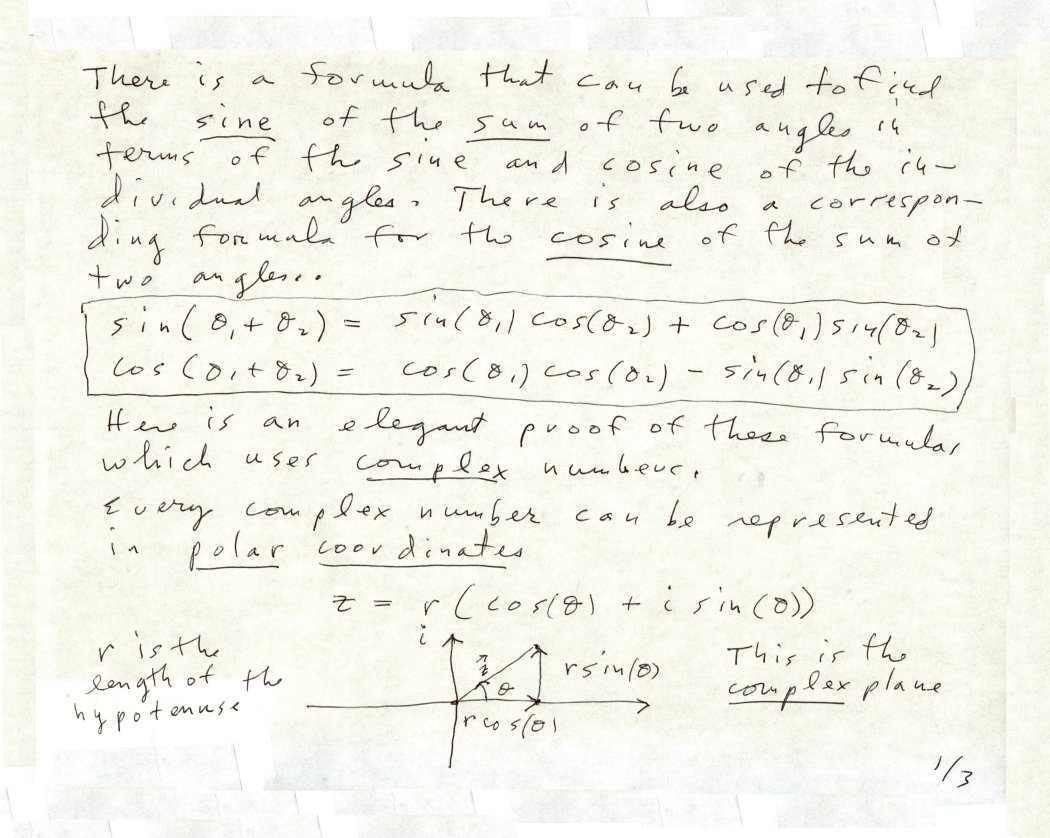 There is a formula that can be used to find
the sine of the sum of two angles in
terms of the sine and cosine of the in-
dividual angles. There is also a correspon-
ding formula for the cosine of the sum of
two angles..
sin(θ₁+θ₂) = sin(θ₁) cos(θ₂) + cos(θ₁) sin(θ₂)
cos(θ₁+θ₂) = cos(θ₁) cos(θ₂) - sin(θ₁) sin(θ₂)
Here is an elegant proof of these formulas
which uses complex numbers.
Every complex number can be represented
in polar coordinates
z = r(cos(θ) + i sin(θ))
r is the
length of the
hypotenuse
i
z
θ
r sin(θ)
r cos(θ)
This is the
complex plane
1/3